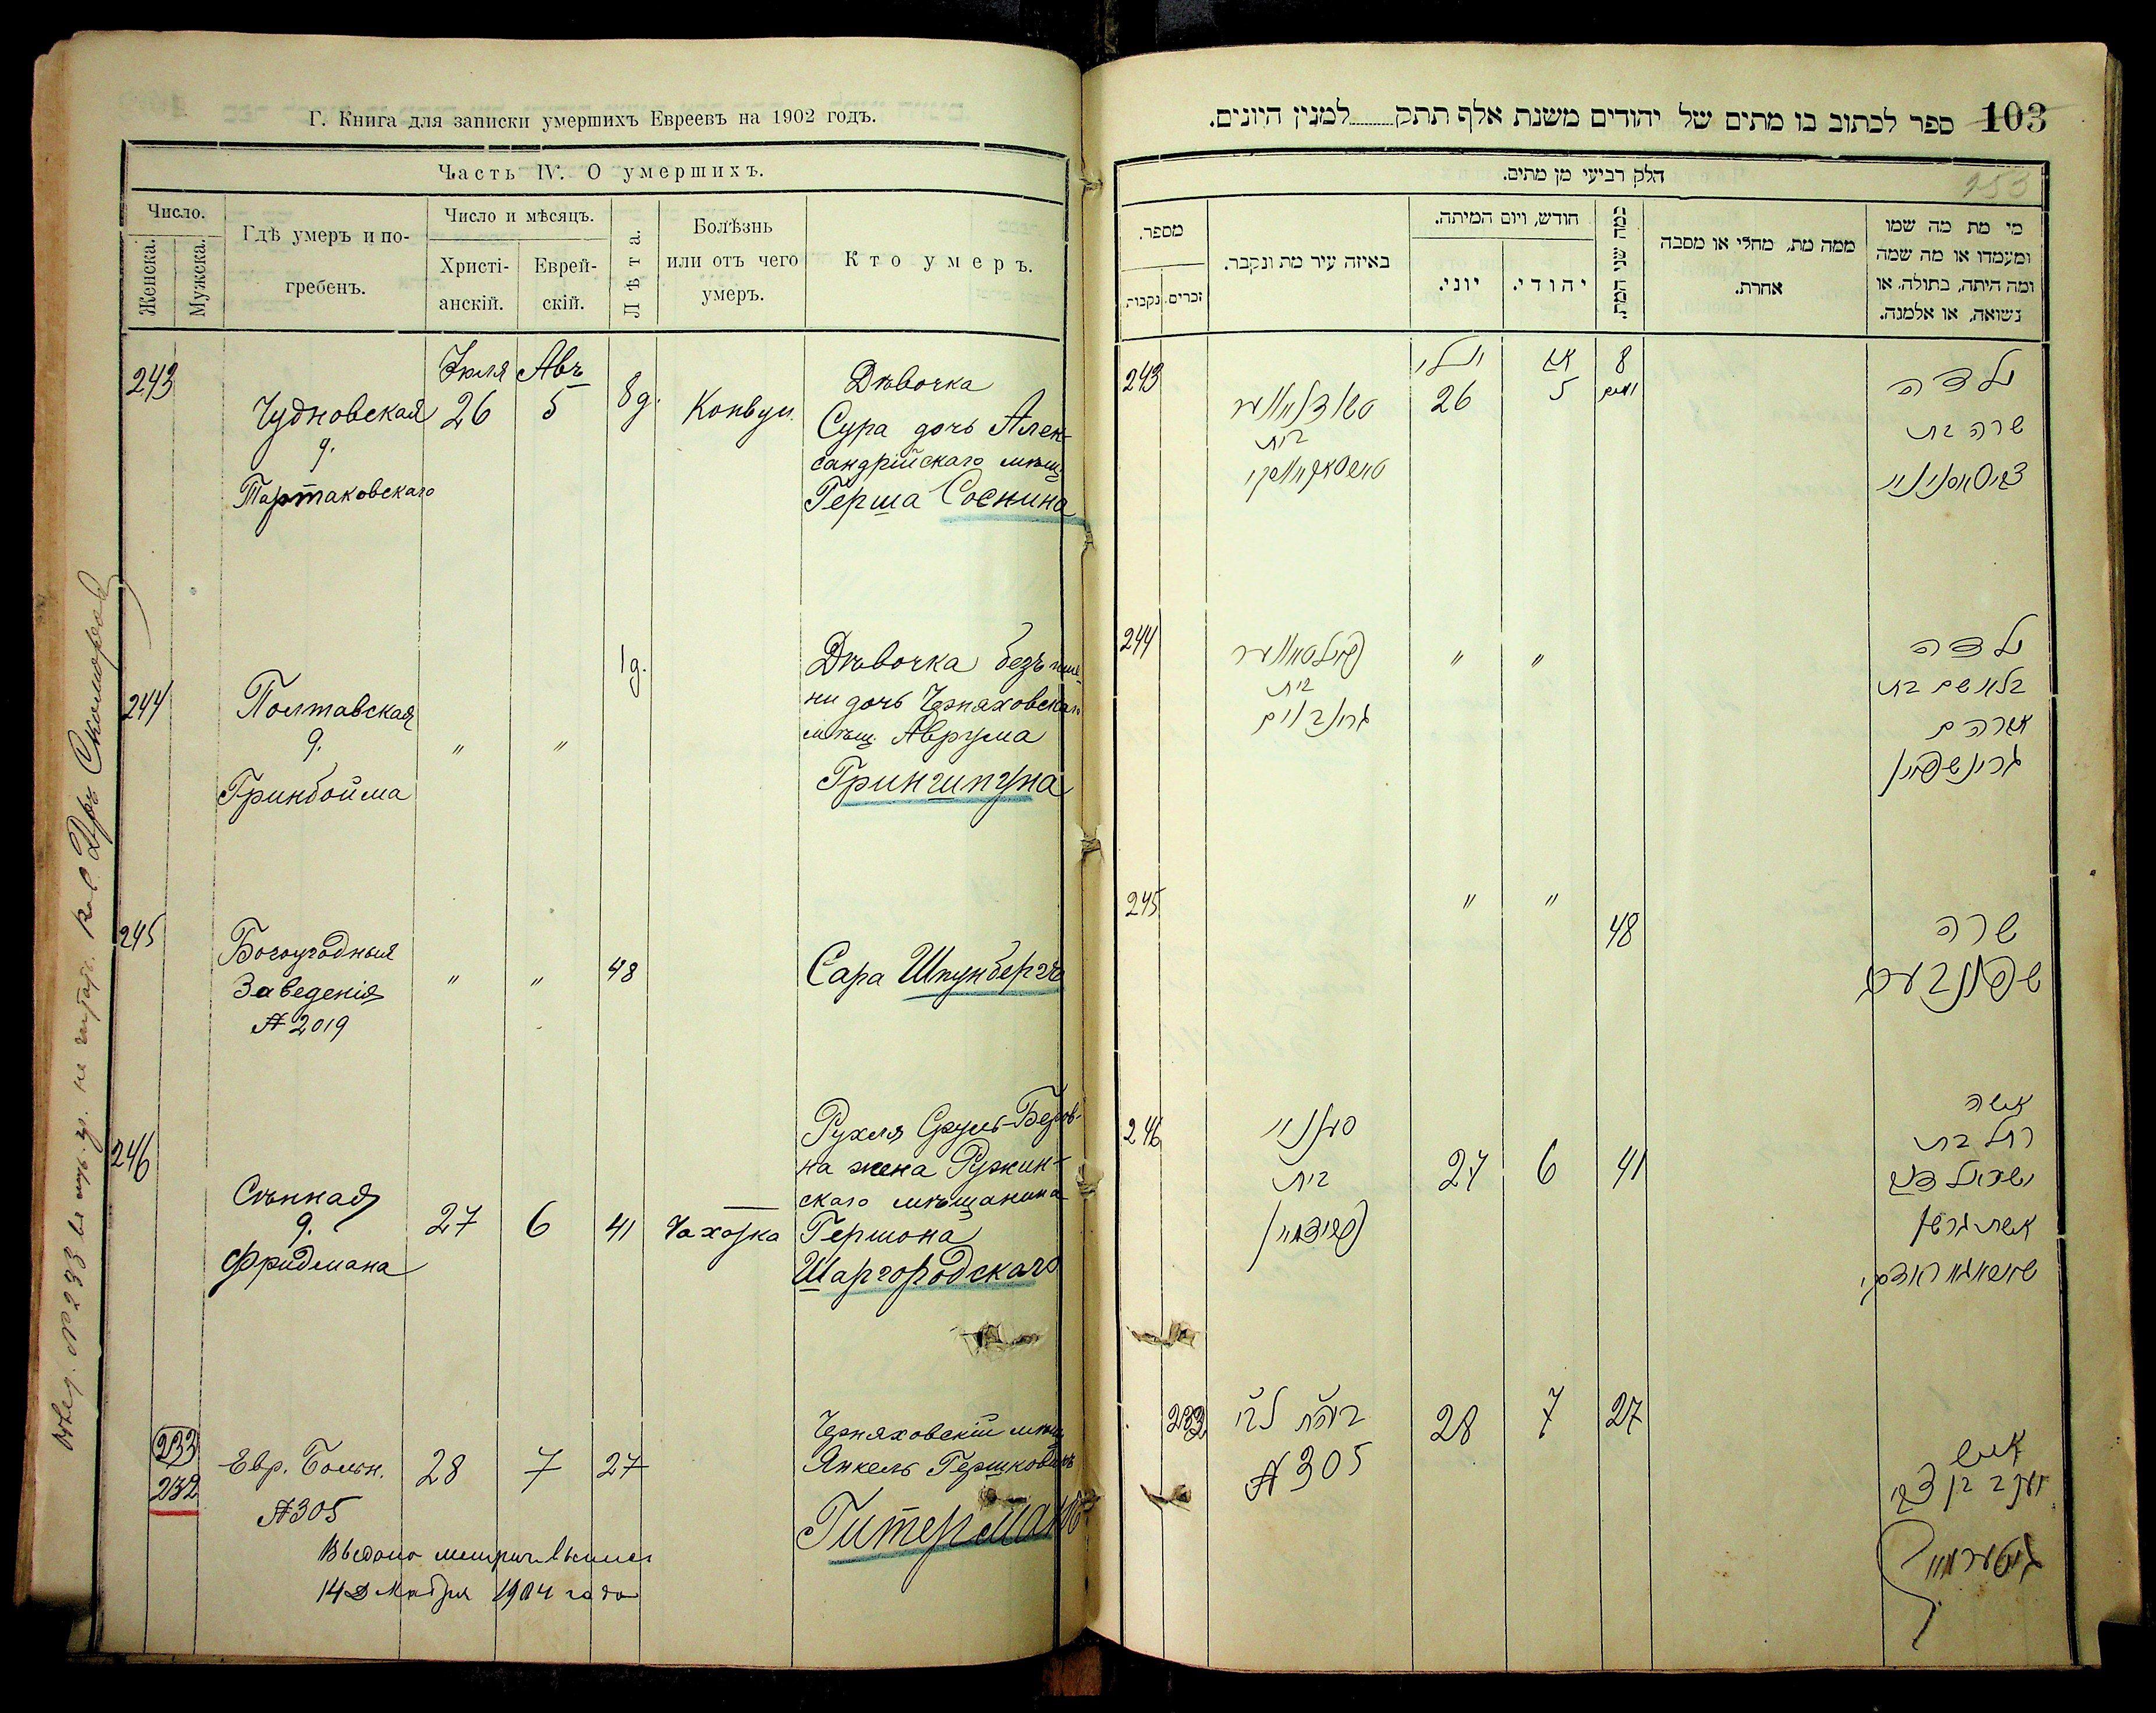 Г. Книга для записки умершихъ Евреевъ на 1902 годъ.
Часть IV. О умершихъ.
Число.
Женска.
Мужска.
Гдѣ умеръ и по-
гребенъ.
Число и мѣсяцъ.
Христі-
анскій.
Еврей-
скій.
Лѣта.
Болѣзнь
или отъ чего
умеръ.
Кто умеръ.
243
Чудновская
д.
Тартаковскаго
Іюля
26
Авъ
5
8 д.
Конвул.
Дѣвочка
Сура дочь Алек-
сандрійскаго мѣщ.
Герша Соснина
244
Полтавская
д.
Гринбойма
"
"
1 д.
Дѣвочка безъ име-
ни дочь Черняховскаго
мѣщ. Аврума
Гриншпуна
245
Богоугодныя
Заведенія
№ 2019
"
"
48
Сара Шпунбергъ
246
Сѣнная
д.
Фридмана
27
6
41
Чахотка
Рухля Сруль-Беров-
на жена Ружин-
скаго мѣщанина
Гершона
Шаргородскаго
233
232
Евр. Больн.
№ 305
28
7
27
Черняховскій мѣщ.
Янкель Гершковичъ
Гитерманъ
14 1904 года
ספר לכתוב בו מתים של יהודים משנת אלף תתק למנין היונים.
103
253
חלק רביעי מן מתים.
מספר.
נקבות
זכרים.
באיזה עיר מת ונקבר.
חודש, ויום המיתה.
יוני.
יהודי.
כמה שני המת.
ממה מת, מחלי או מסבה
אחרת.
מי מת מה שמו
ומעמדו או מה שמה
ומה היתה, בתולה, או
נשואה, או אלמנה.
243
בית
יולי
26
אב
5
8
ימים
ילדה
שרה בת
244
בית
גרינבוים
"
"
ילדה
בלא שם בת
אברהם
גרינשפון
245
"
"
48
שרה
שפונבערג
246
בית
פרידמאן
27
6
41
אשה
רחל בת
ישראל דוב
אשת גרשון
שארגאראדסקי
232
№ 305
28
7
27
איש
יעקב בן צבי
גיטערמאן